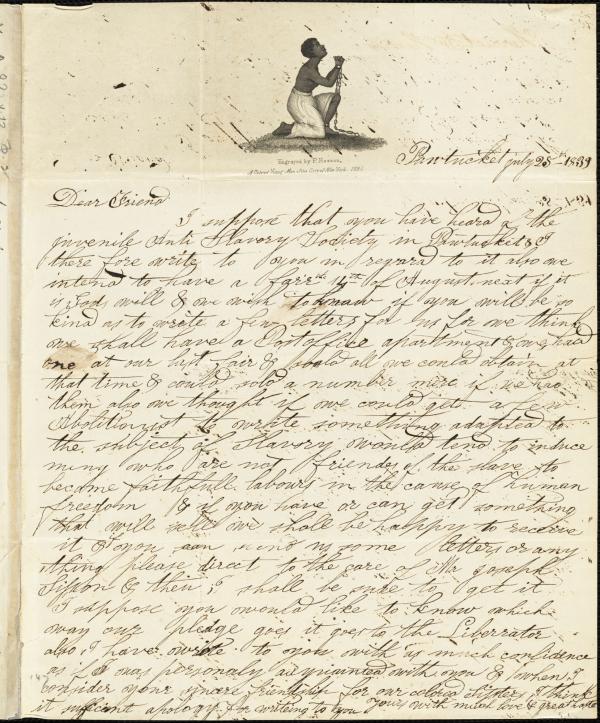 Engraved by P. Reason,
A Colored Young Man of the City of New York 1835
Pawtucket july 25th 1839
Dear Friend
I suppose that you have heard of the
juvenile Anti Slavery Society in Pawtucket & I
there fore write to you in regard to it also we
intend to have a fair 14th of August next if it
is Gods will & we wish to know if you will be so
kind as to write a few letters for us for we think
we shall have a Postoffice apartment & we had
one at our last fair & sold all we could obtain at
that time & could sold a number more if we had
them also we thought if we could get a few
Abolitionist to write something adapted to
the subject of Slavery would tend to induce
meny who are not friends of the slave to
become faithfull labours in the cause of human
freedom & if you have or can get something
that will sell we shall be happy to receive
it & you can send us some letters or any
thing please direct to the care of Mr Joseph
Sisson & then I shall be sure to get it
I suppose you would like to know which
way our pledge goes it goes to the Liberrator
also I have wrote to you with as much confidence
as if I was personaly acquainted with you & when I
consider your friendship for our colored sisters I think
it suficent apology for writing to you Yours with much love &